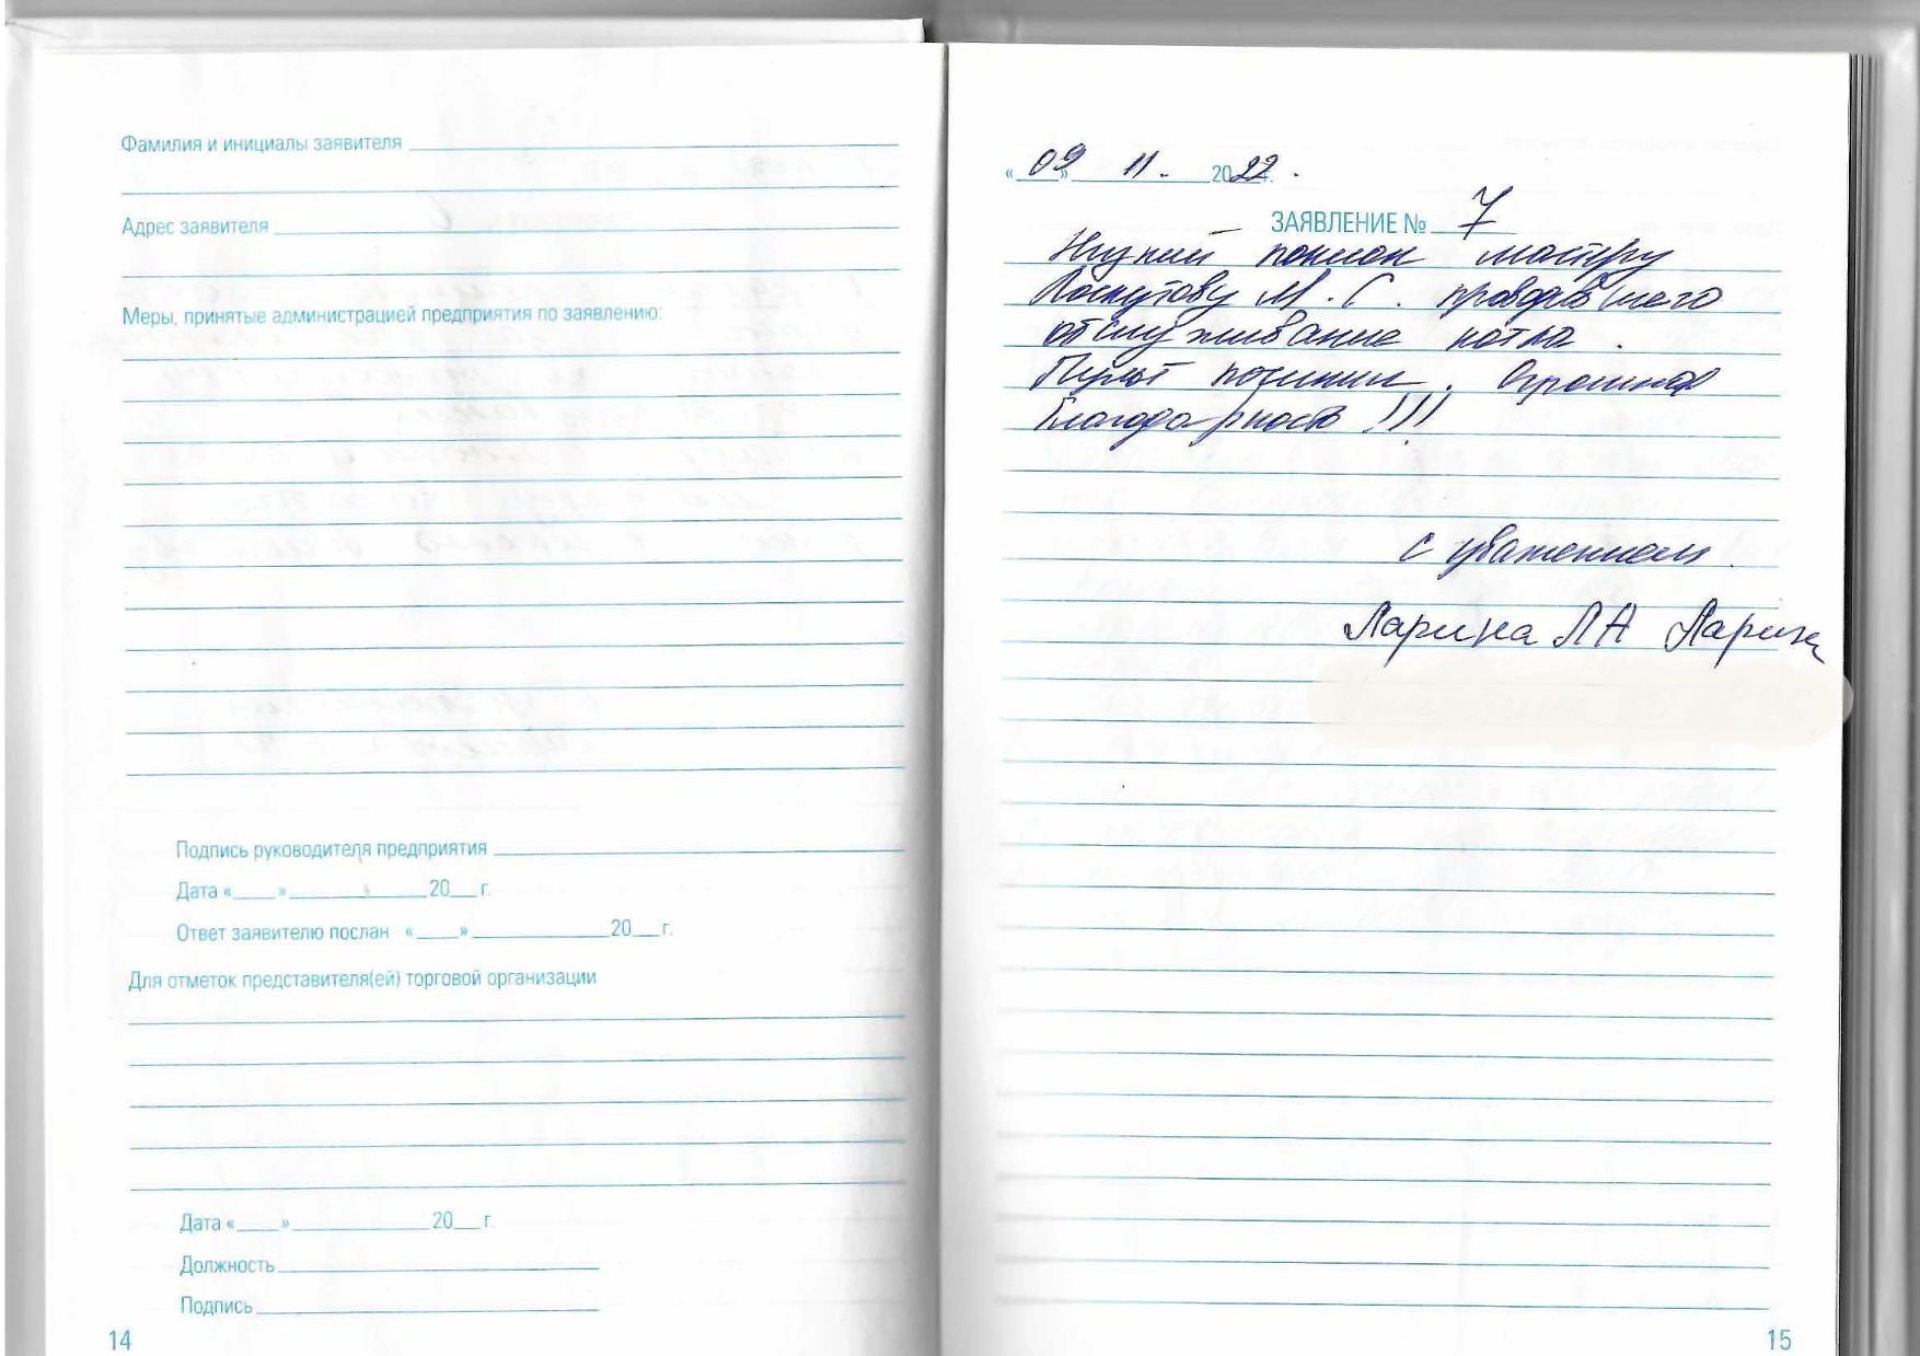 Фамилия и инициалы заявителя
Адрес заявителя
Меры, принятые администрацией предприятия по заявлению:
Подпись руководителя предприятия
Дата «____»____________20___г.
Ответ заявителю послан «____»____________20___г.
Для отметок представителя(ей) торговой организации
Дата «____»____________20___г.
Должность
Подпись
14
«09» 11. 2022г.
ЗАЯВЛЕНИЕ № 7
Низкий поклон мастеру
Лоскутову М.С. проводившего
обслуживание котла.
Пульт починил. Огромная
благодарность!!!
с уважением.
Ларина ЛА Ларин
15